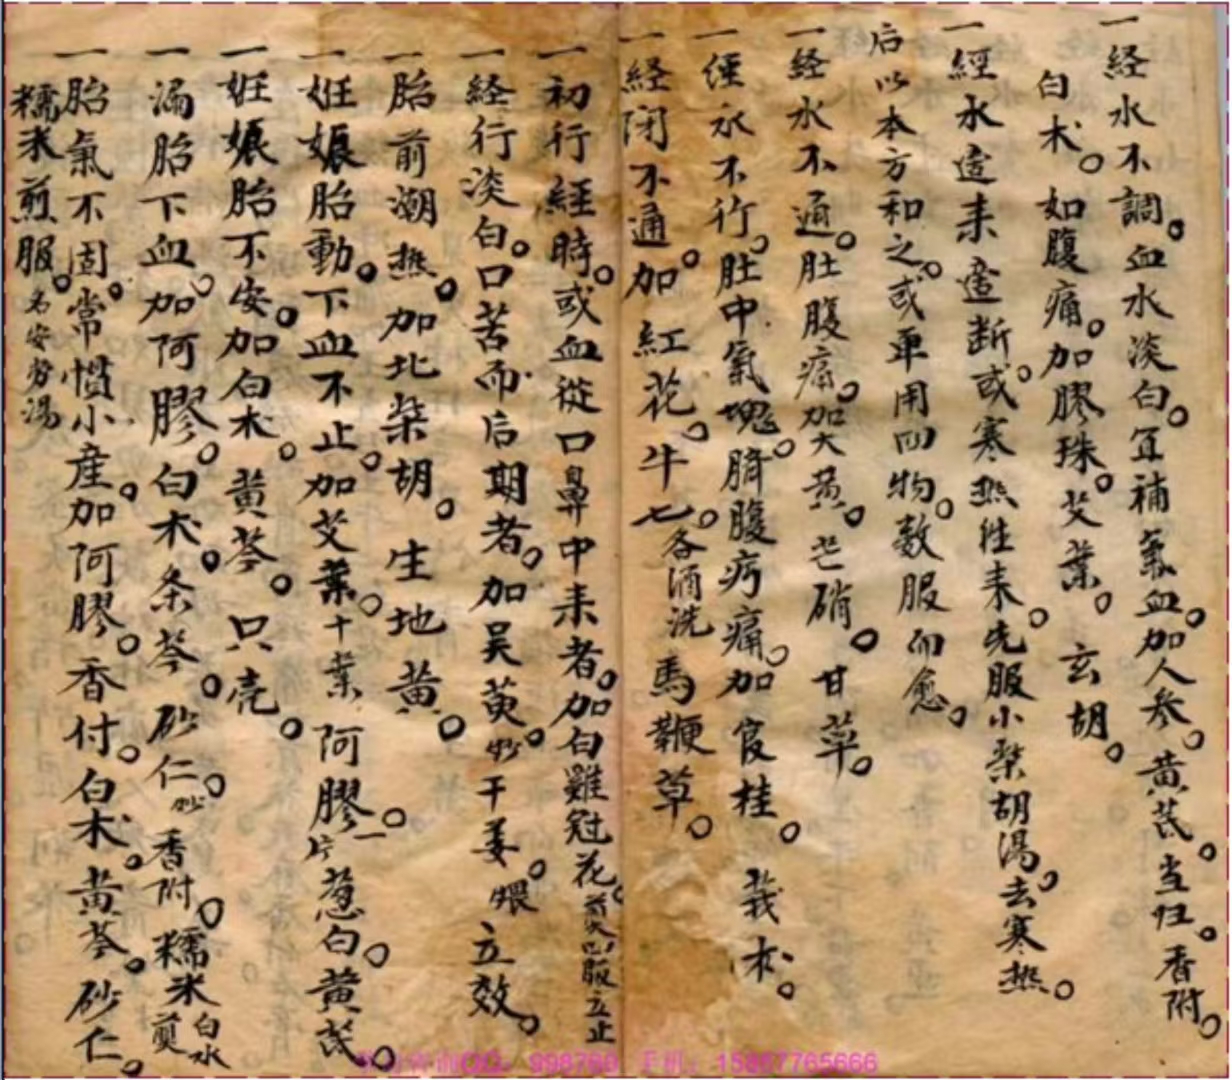 一经水不調。血水淡白。宜補氣血。加人参。黄芪。当归。香附。
白术。如腹痛。加膠珠。艾葉。玄胡。
一經水適来適断。或寒热往来。先服小柴胡湯。去寒热。
后以本方和之。或单用四物。数服而愈。
一経水不通。肚腹痛。加大黄。芒硝。甘草。
一経水不行。肚中氣塊。臍腹疠痛。加官桂。莪术。
一経闭不通。加紅花。牛七。各酒洗馬鞭草。
一初行經時。或血從口鼻中来者。加白雞冠花。 服立止
一経行淡白。口苦而后期者。加吴萸炒。干姜。煨立效。
一胎前潮热。加北柴胡。生地黄。
一妊娠胎動。下血不止。加艾葉。十葉阿膠。一片葱白。黄芪。
一妊娠胎不安。加白术。黄芩。只壳。
一漏胎下血。加阿膠。白术。条芩。砂仁。炒香附。糯米白水煎
一胎氣不固。常慣小産。加阿膠。香付。白术。黄芩。砂仁。
糯米煎服。名安劳湯
998780 手机：15867765666